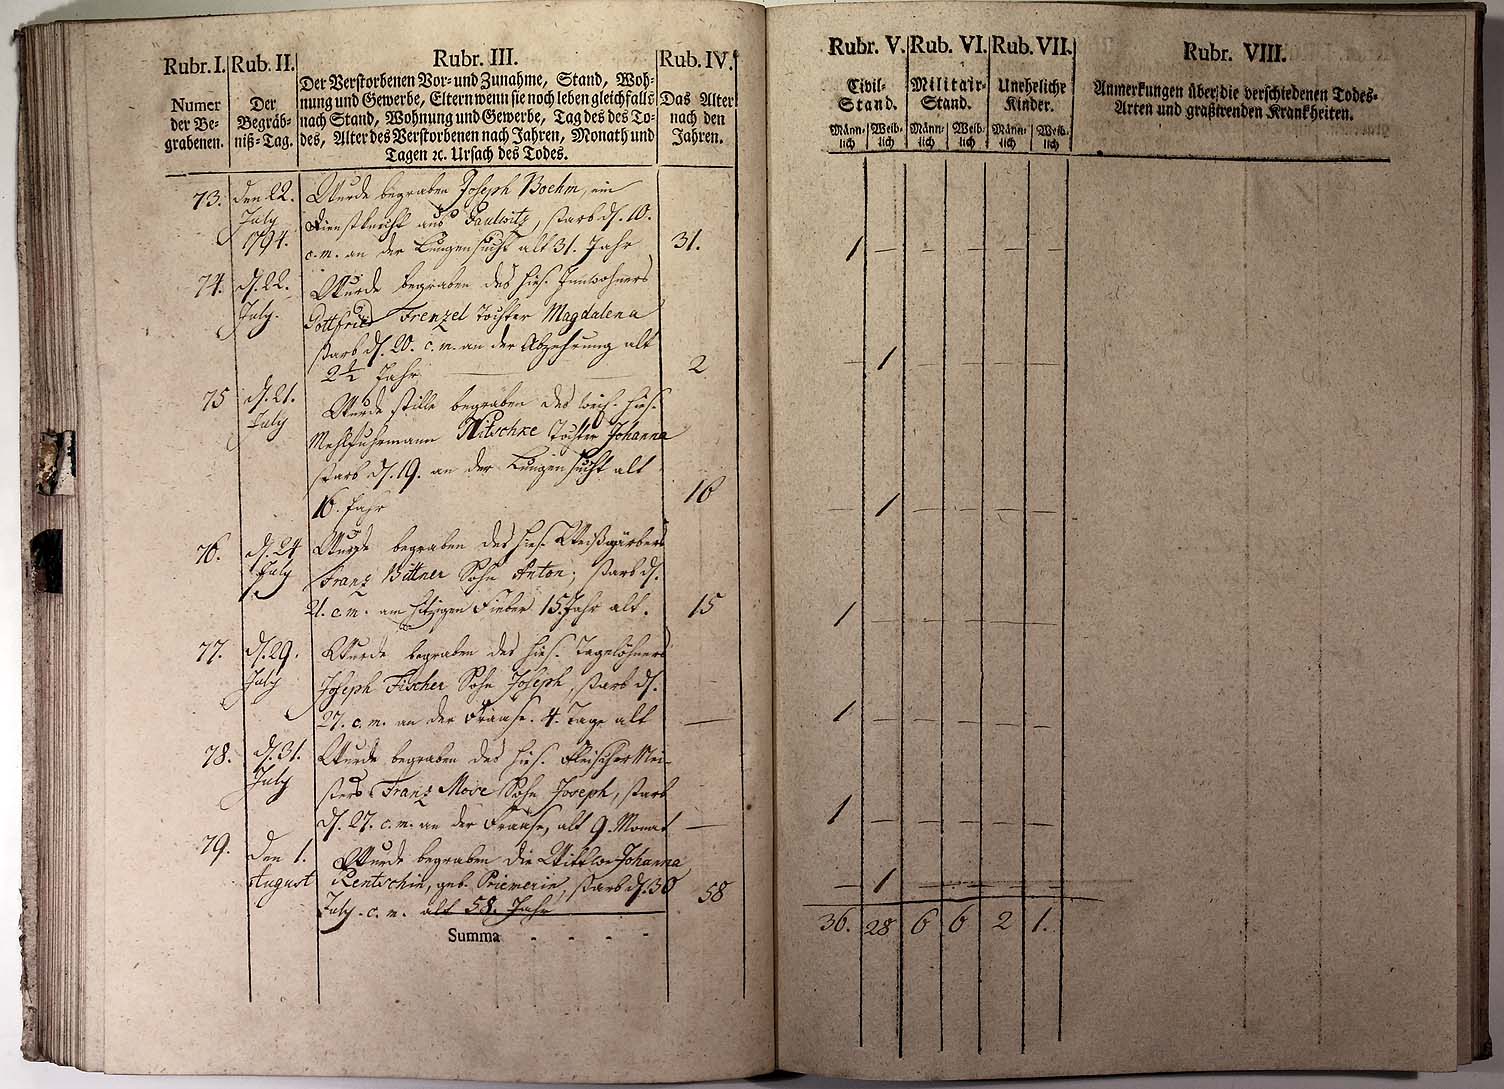 Rubr. I.
Numer
der Be-
grabenen.
Rub. II.
Der
Begräb-
niß-Tag.
Rubr. III.
Der Verstorbenen Vor- und Zunahme, Stand, Woh-
nung und Gewerbe, Eltern wenn sie noch leben gleichfalls
nach Stand, Wohnung und Gewerbe, Tag des des To-
des, Alter des Verstorbenen nach Jahren, Monath und
Tagen ꝛc. Ursach des Todes.
Rub. IV.
Das Alter
nach den
Jahren.
73. den 22. Wurde begraben Joseph Boehm, ein
July Dienstknecht aus Paulwitz, starb d. 10.
1794. c. m. an der Lungensucht alt 31. Jahr 31.
74. d. 22. Wurde begraben des hies. Innwohners
July. Gottfried Frenzel Tochter Magdalena
starb d. 20. c. m. an der Abzehrung alt
2½ Jahr 2
75 d. 21. Wurde stille begraben des hies.
July Mehlfuhrmann Nitschke Tochter Johanna
starb d. 19. an der Lungensucht alt
16. Jahr 16
76. d. 24 Wurde begraben des hies. Weißgärbers
July Franz Bittner Sohn Anton, starb d.
21. c. m. am hitzigen Fieber 15. Jahr alt. 15
77. d. 29. Wurde begraben des hies. Tagelöhners
July Joseph Fischer Sohn Joseph, starb d.
27. c. m. an der Fraase. 4. Tage alt —
78. d. 31. Wurde begraben des hies. Fleischer Mei-
July sters Franz Sohn Joseph, starb
d. 27. c. m. an der Fraase, alt 9. Monat —
79. den 1. Wurde begraben die Wittwe Johanna
August geb. starb d. 30
July. c. m. alt 58. Jahr 58
Summa - - - -
Rubr. V.
Civil-
Stand.
Männ-
lich
Weib-
lich
Rub. VI.
Militair-
Stand.
Männ-
lich
Weib-
lich
Rub. VII.
Unehrliche
Kinder.
Männ-
lich
Weib-
lich
Rubr. VIII.
Anmerkungen über die verschiedenen Todes-
Arten und graßirenden Krankheiten.
1 — — — — —
— 1 — — — —
— 1 — — — —
1 — — — — —
1 — — — — —
1 — — — — —
— 1 — — — —
36. 28 6 6 2 1.